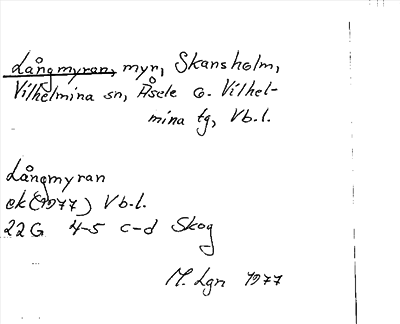 Långmyran, myr, Skansholm,
Vilhelmina sn, Åsele o. Vilhel-
mina tg, Vb.l.
Långmyran
ek(1977) Vb.l.
22G 4-5 c-d Skog
M. Lgn 1977